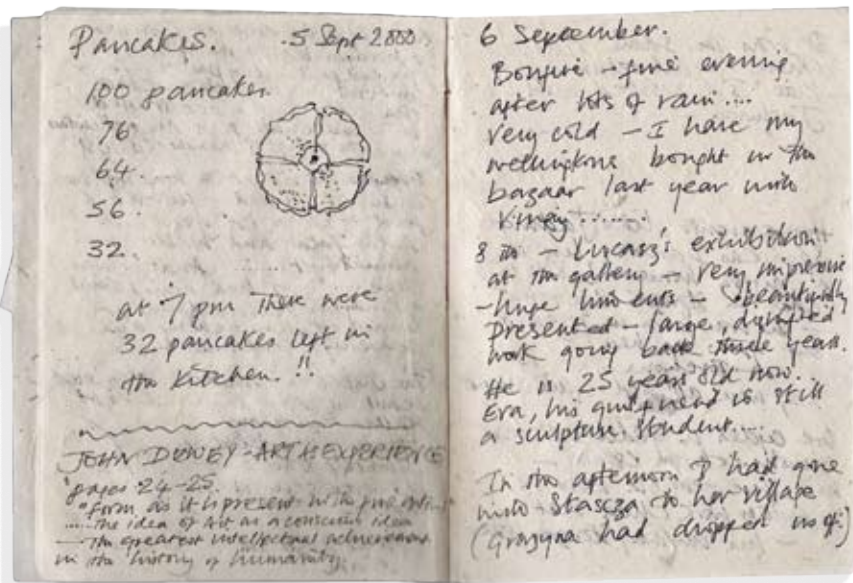 Pancakes.
5 Sept 2000
100 pancakes
76
64.
56.
32.
at 7 pm there were
32 pancakes left in
the kitchen. !!
JOHN DEWEY - ART AS EXPERIENCE
pages 24-25.
"form as it is present in the fine arts"
.... the idea of Art as a conscious idea
— the greatest intellectual achievement
in the history of humanity.
6 September.
Bonfire - fine evening
after lots of rain....
Very cold - I have my
wellingtons bought in the
bazaar last year with
8th - Lukasz's exhibition
at the gallery - very impressive
- huge lino cuts - beautifully
presented - large,
work going back three years.
He is 25 years old now.
Eva, his girlfriend is still
a sculpture student....
In the afternoon I had gone
with to her village
(Grazyna had dropped us off.)